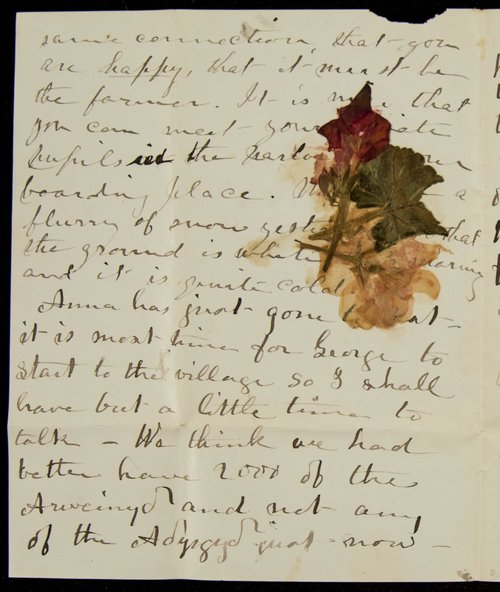 same connection, that you
are happy, that it must be
the farmer. It is nice that
you can meet your private
pupils in the parlor your
boarding place. a
flurry of snow that
the ground is white morning
and it is quite cold
Anna has just gone
it is most time for George to
start to the village so I shall
have but a little time to
talk – We think we had
better have 2000 of the
and not any
of the just now –